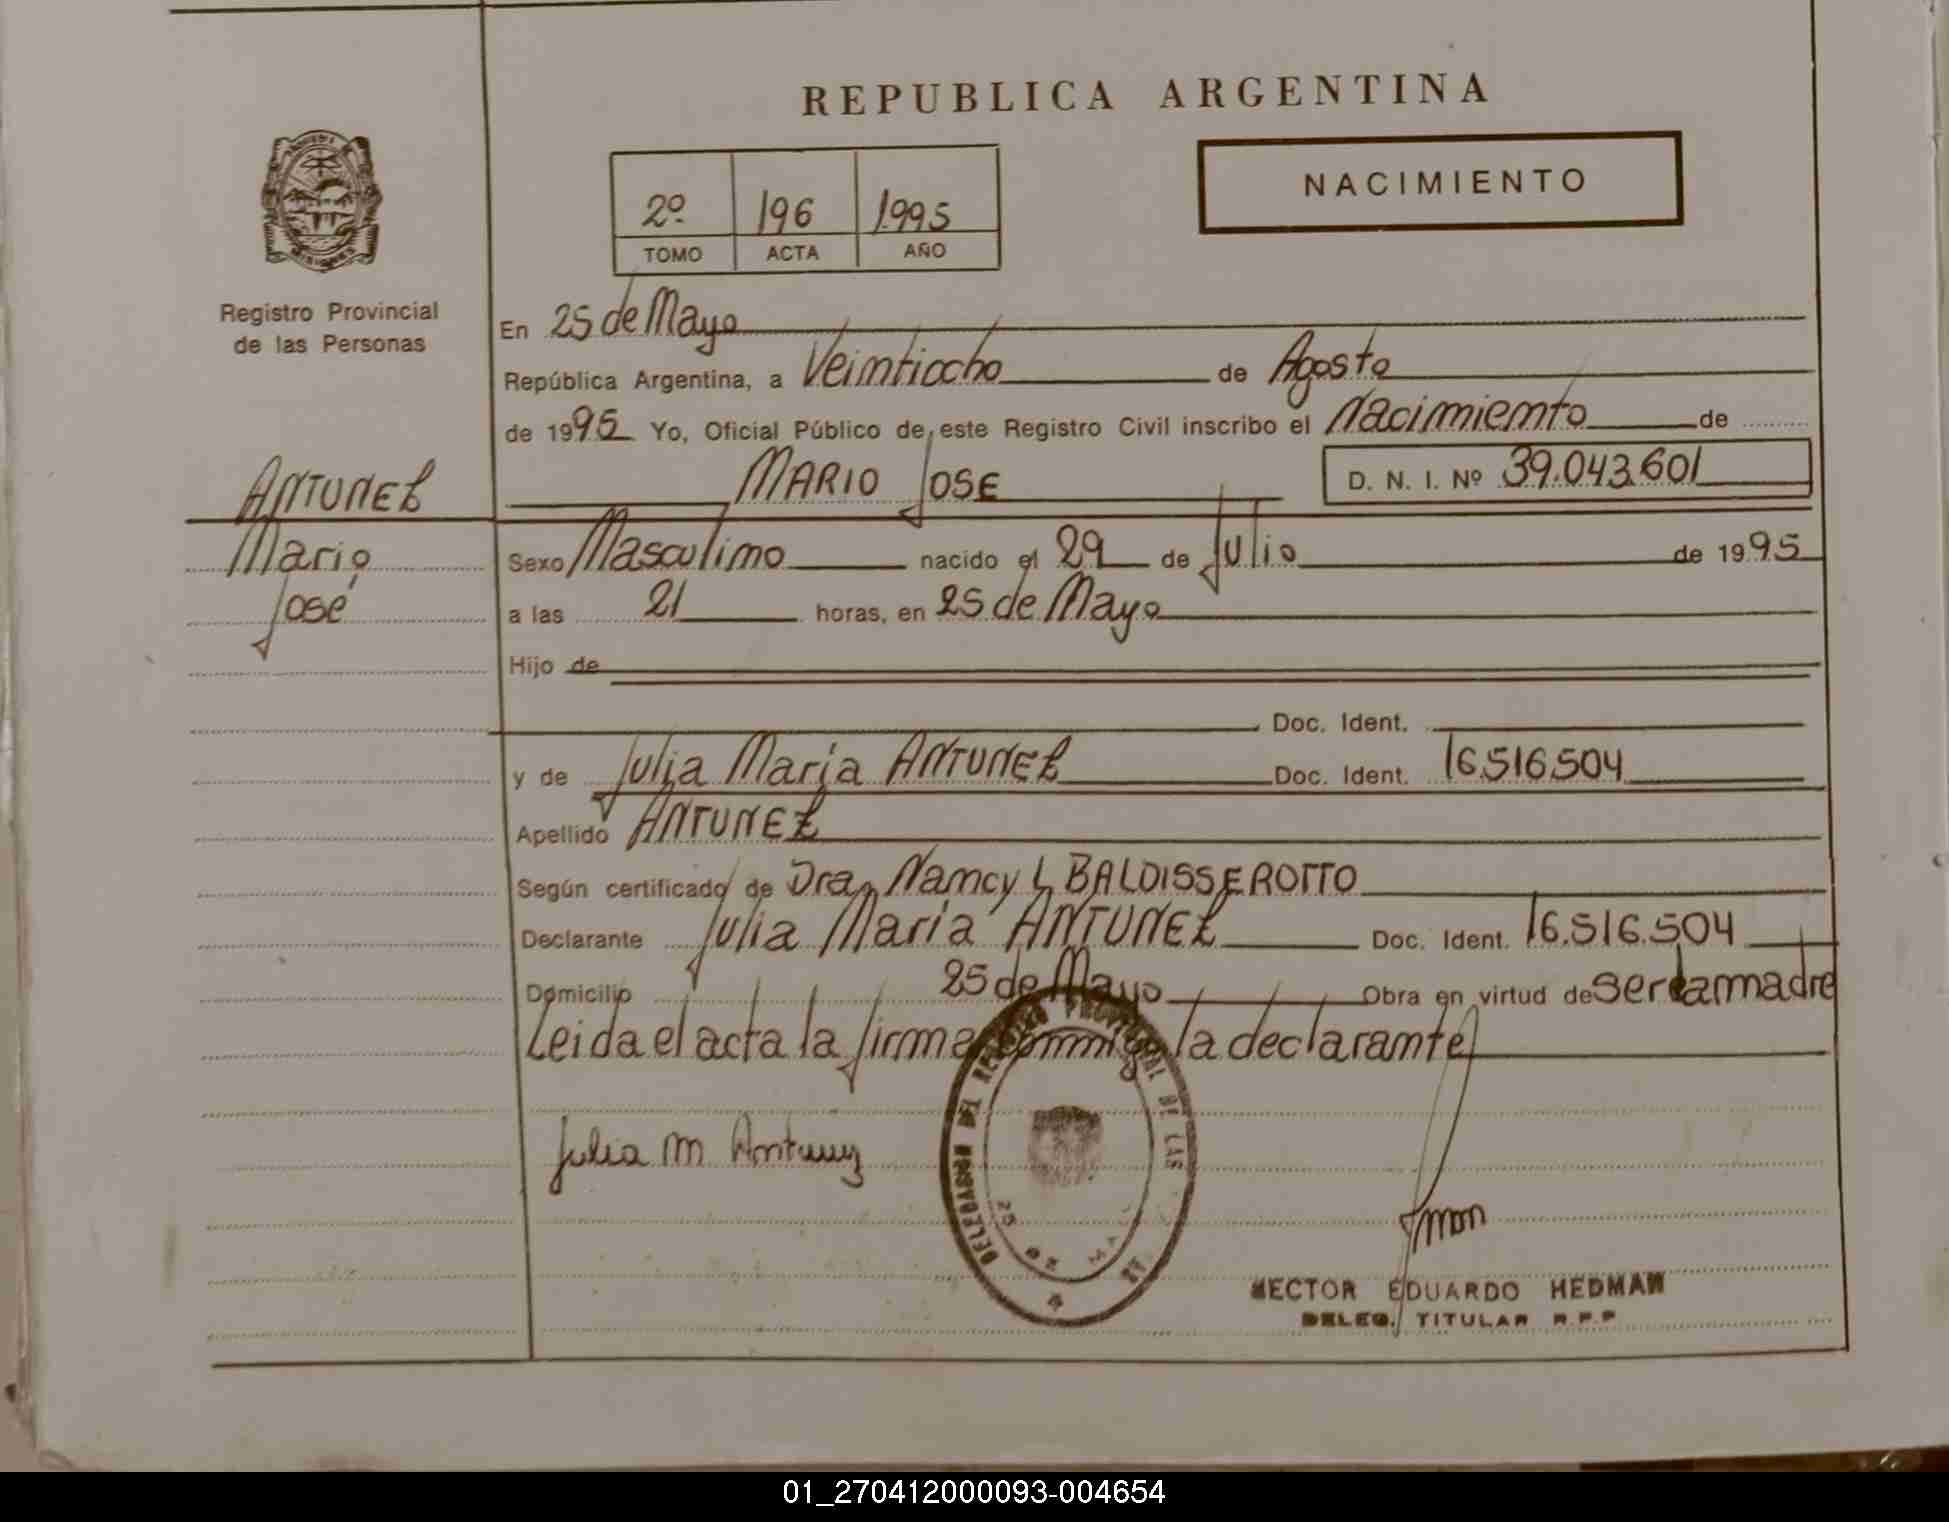 REPUBLICA ARGENTINA
NACIMIENTO
2º 196 1995
TOMO ACTA AÑO
MISIONES
Registro Provincial
de las Personas
En 25 de Mayo
República Argentina, a Veintiocho de Agosto
de 1995 Yo, Oficial Público de este Registro Civil inscribo el Nacimiento de
MARIO JOSE D. N. I. Nº 39.043.601
ANTUNEZ
Mario
José
Sexo Masculino nacido el 29 de Julio de 1995
a las 21 horas, en 25 de Mayo
Hijo de
Doc. Ident.
y de Julia María ANTUNEZ Doc. Ident. 16.516.504
Apellido ANTUNEZ
Según certificado de Dra. Nancy L BALDISSEROTTO
Declarante Julia María ANTUNEZ Doc. Ident. 16.516.504
Domicilio 25 de Mayo Obra en virtud de ser la madre
Leida el acta la firma conmigo la declarante
DELEGACION DEL REGISTRO PROVINCIAL DE LAS
25 DE MA
Julia M Antunez
HECTOR EDUARDO HEDMAN
DELEG. TITULAR R.P.P
01_270412000093-004654